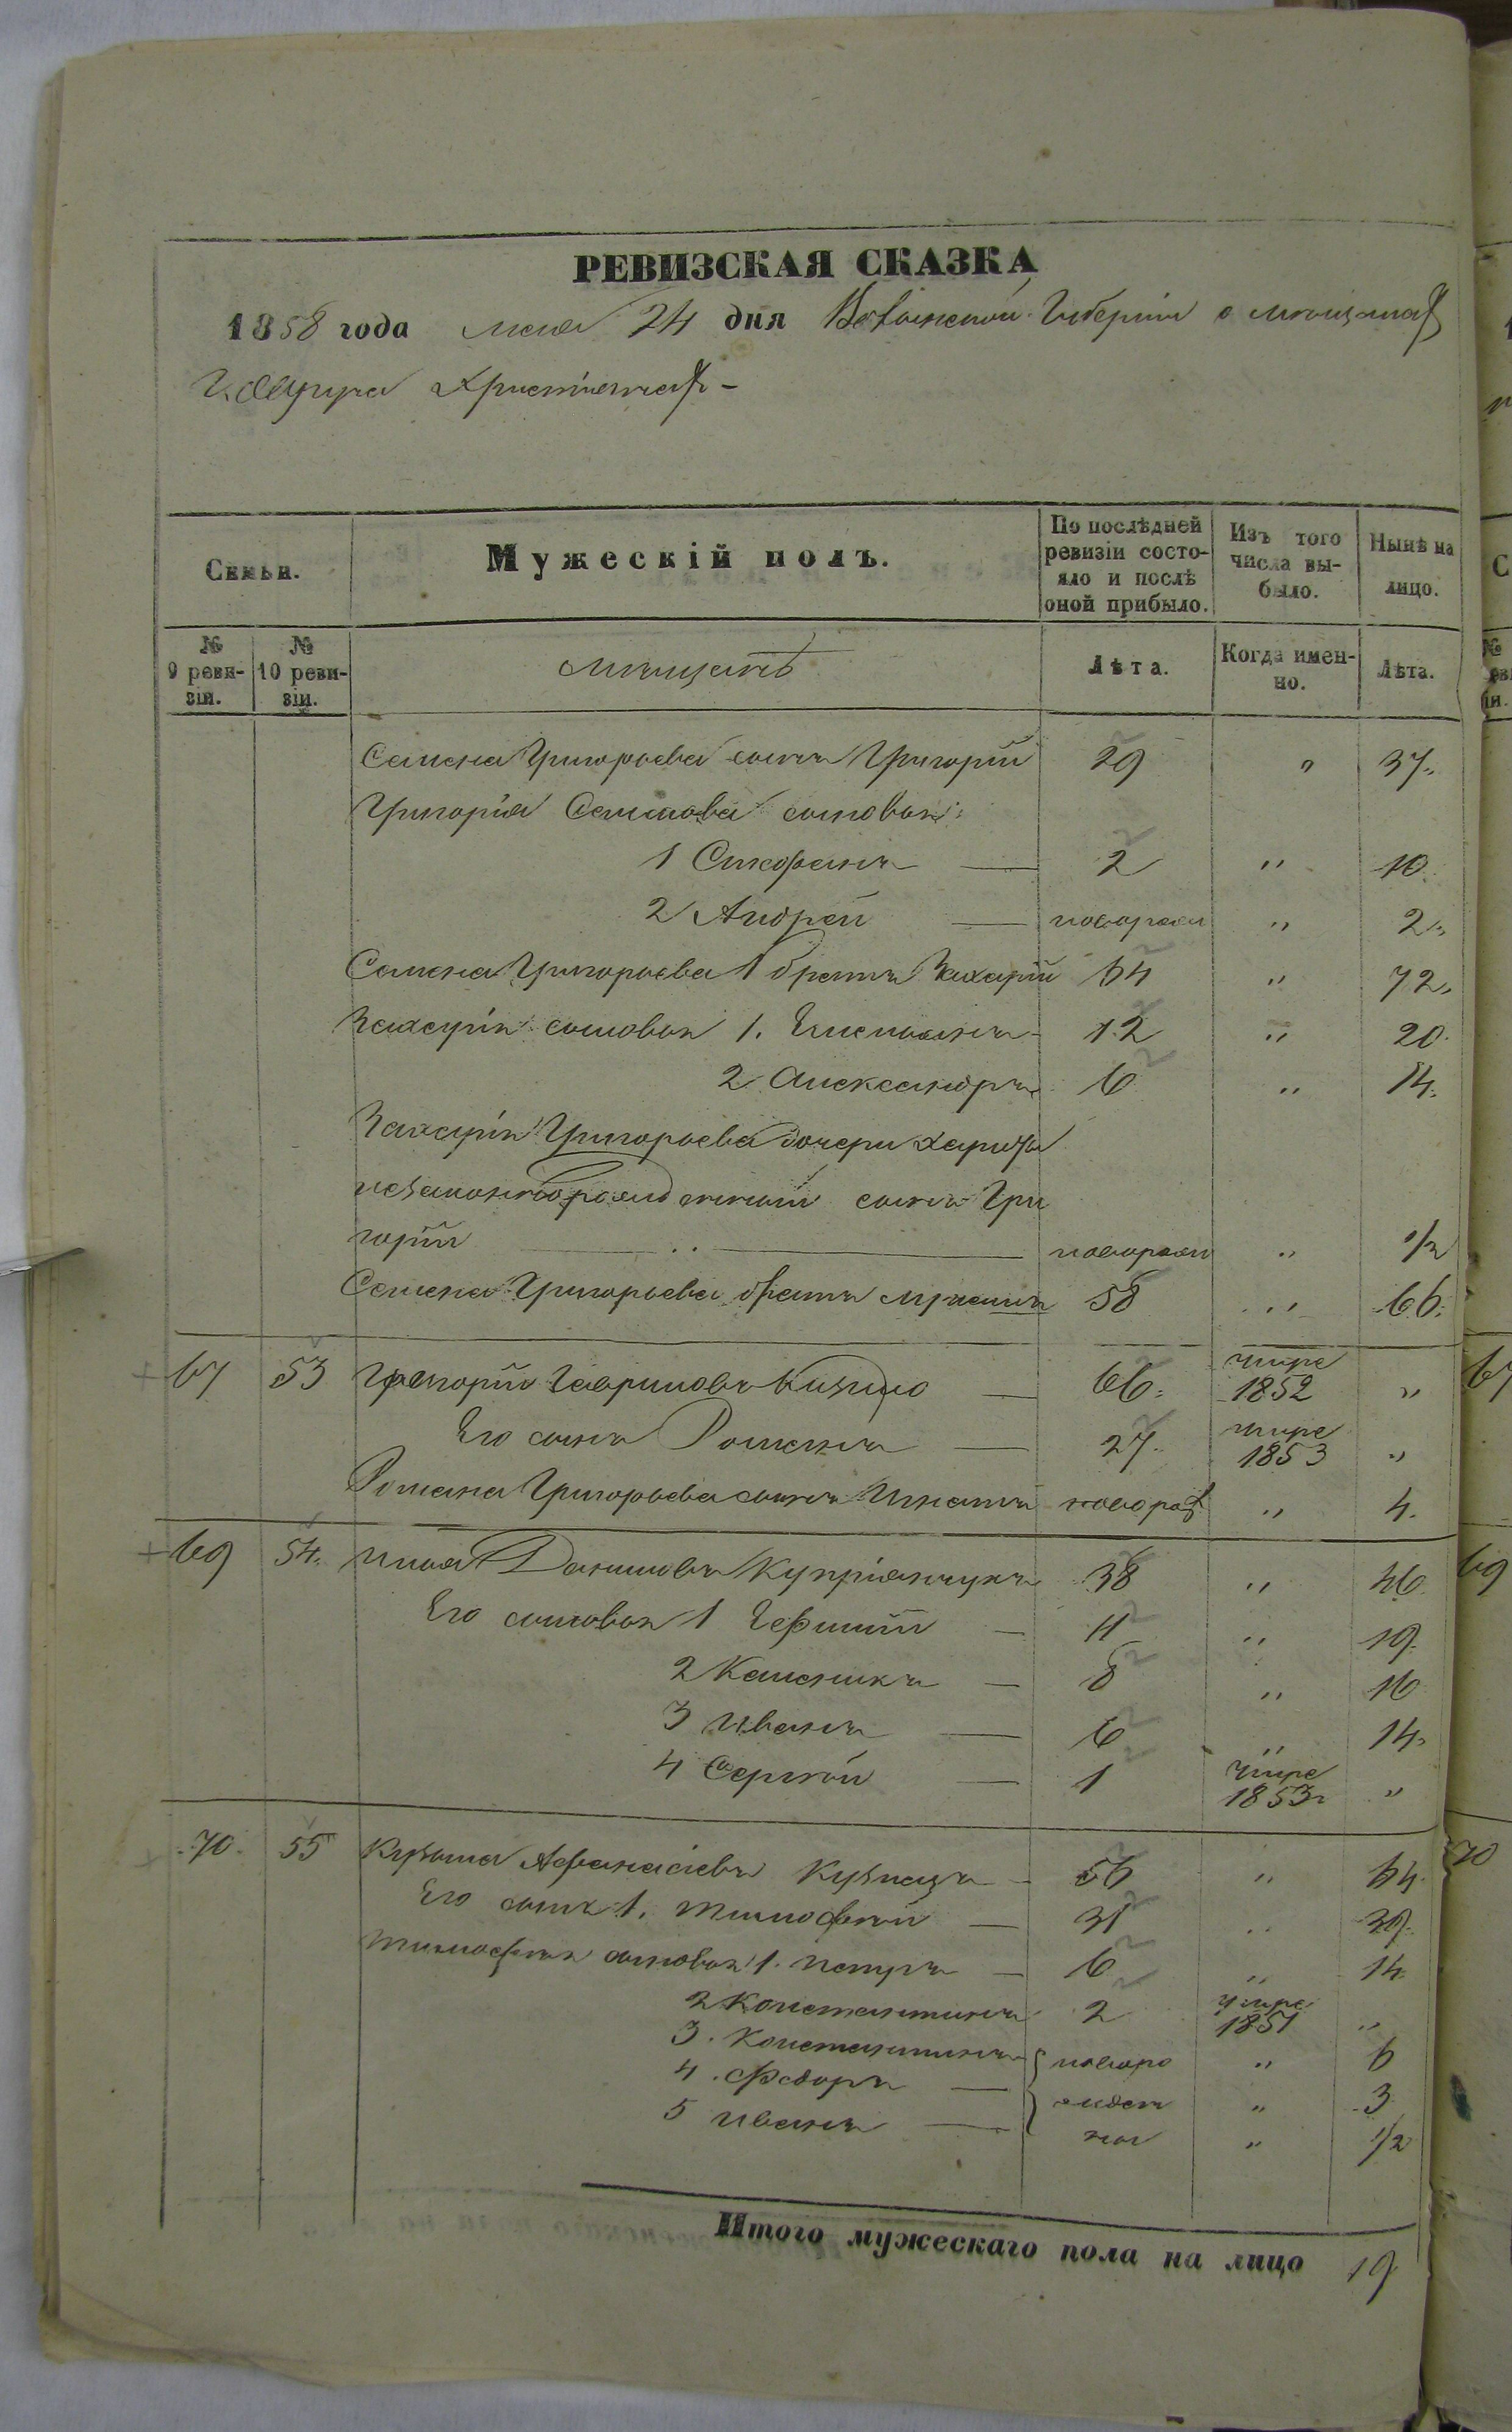 РЕВИЗСКАЯ СКАЗКА
1858 года мая 24 дня Волынской Губерніи о мѣщанах
г. Овруча Христіянах
Семьи.
Мужескій полъ.
По послѣдней ревизіи состояло и послѣ оной прибыло.
Изъ того числа выбыло.
Нынѣ на лицо.
№ 9 ревизіи.
№ 10 ревизіи.
мѣщанъ
Лѣта.
Когда именно.
Лѣта.
Семена Григорьева сынъ Григорій 29 " 37.
Григорія Семенова сыновья:
1 Стефанъ — 2 " 10.
2 Андрей — новорожд " 2.
Семена Григорьева 1 братъ Захарій 64 " 72.
Захарія сыновья 1. Емельянъ 12 " 20.
2 Александръ 6 " 14.
Захарія Григорьева дочери
незаконнорожденный сынъ Гри
горій — новорожд " 1/2
Семена Григорьева братъ 58 " 66.
67 53 Григорій Гавриловъ — 66. умре 1852 "
Его сынъ Романъ — 27. умре 1853 "
Романа Григорьева сынъ Игнатій новорож " 4.
69 54. Илья Даниловъ Купріянчукъ 38 " 46
Его сыновья 1 Ефимій — 11 " 19.
2 Каленикъ — 8 " 16
3 Иванъ — 6 " 14.
4 Сергѣй — 1 умре 1853 "
70. 55 Кузьма Афанасіевъ Кузнецъ — 56 " 64.
Его сынъ 1. Тимофѣй — 31 " 39.
Тимофѣя сыновья 1. Петръ — 6 " 14.
2 Константинъ 2 умре 1851 "
3. Константинъ новоро " 6
4. Федоръ — жден " 3
5 Иванъ — ны " 1/2
Итого мужескаго пола на лицо 19